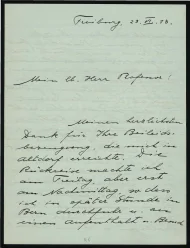 Freiburg, 23. VI. 26.
Mein lb. Herr Professor!
Meinen herzlichsten
Dank für Ihre Beileids-
bezeugung, die mich in
Altdorf erreichte. Die
Rückreise machte ich
am Freitag, aber erst
am Nachmittag, so dass
ich in später Stunde in
Bern durchfuhr u. an
einen Aufenthalt u. Besuch